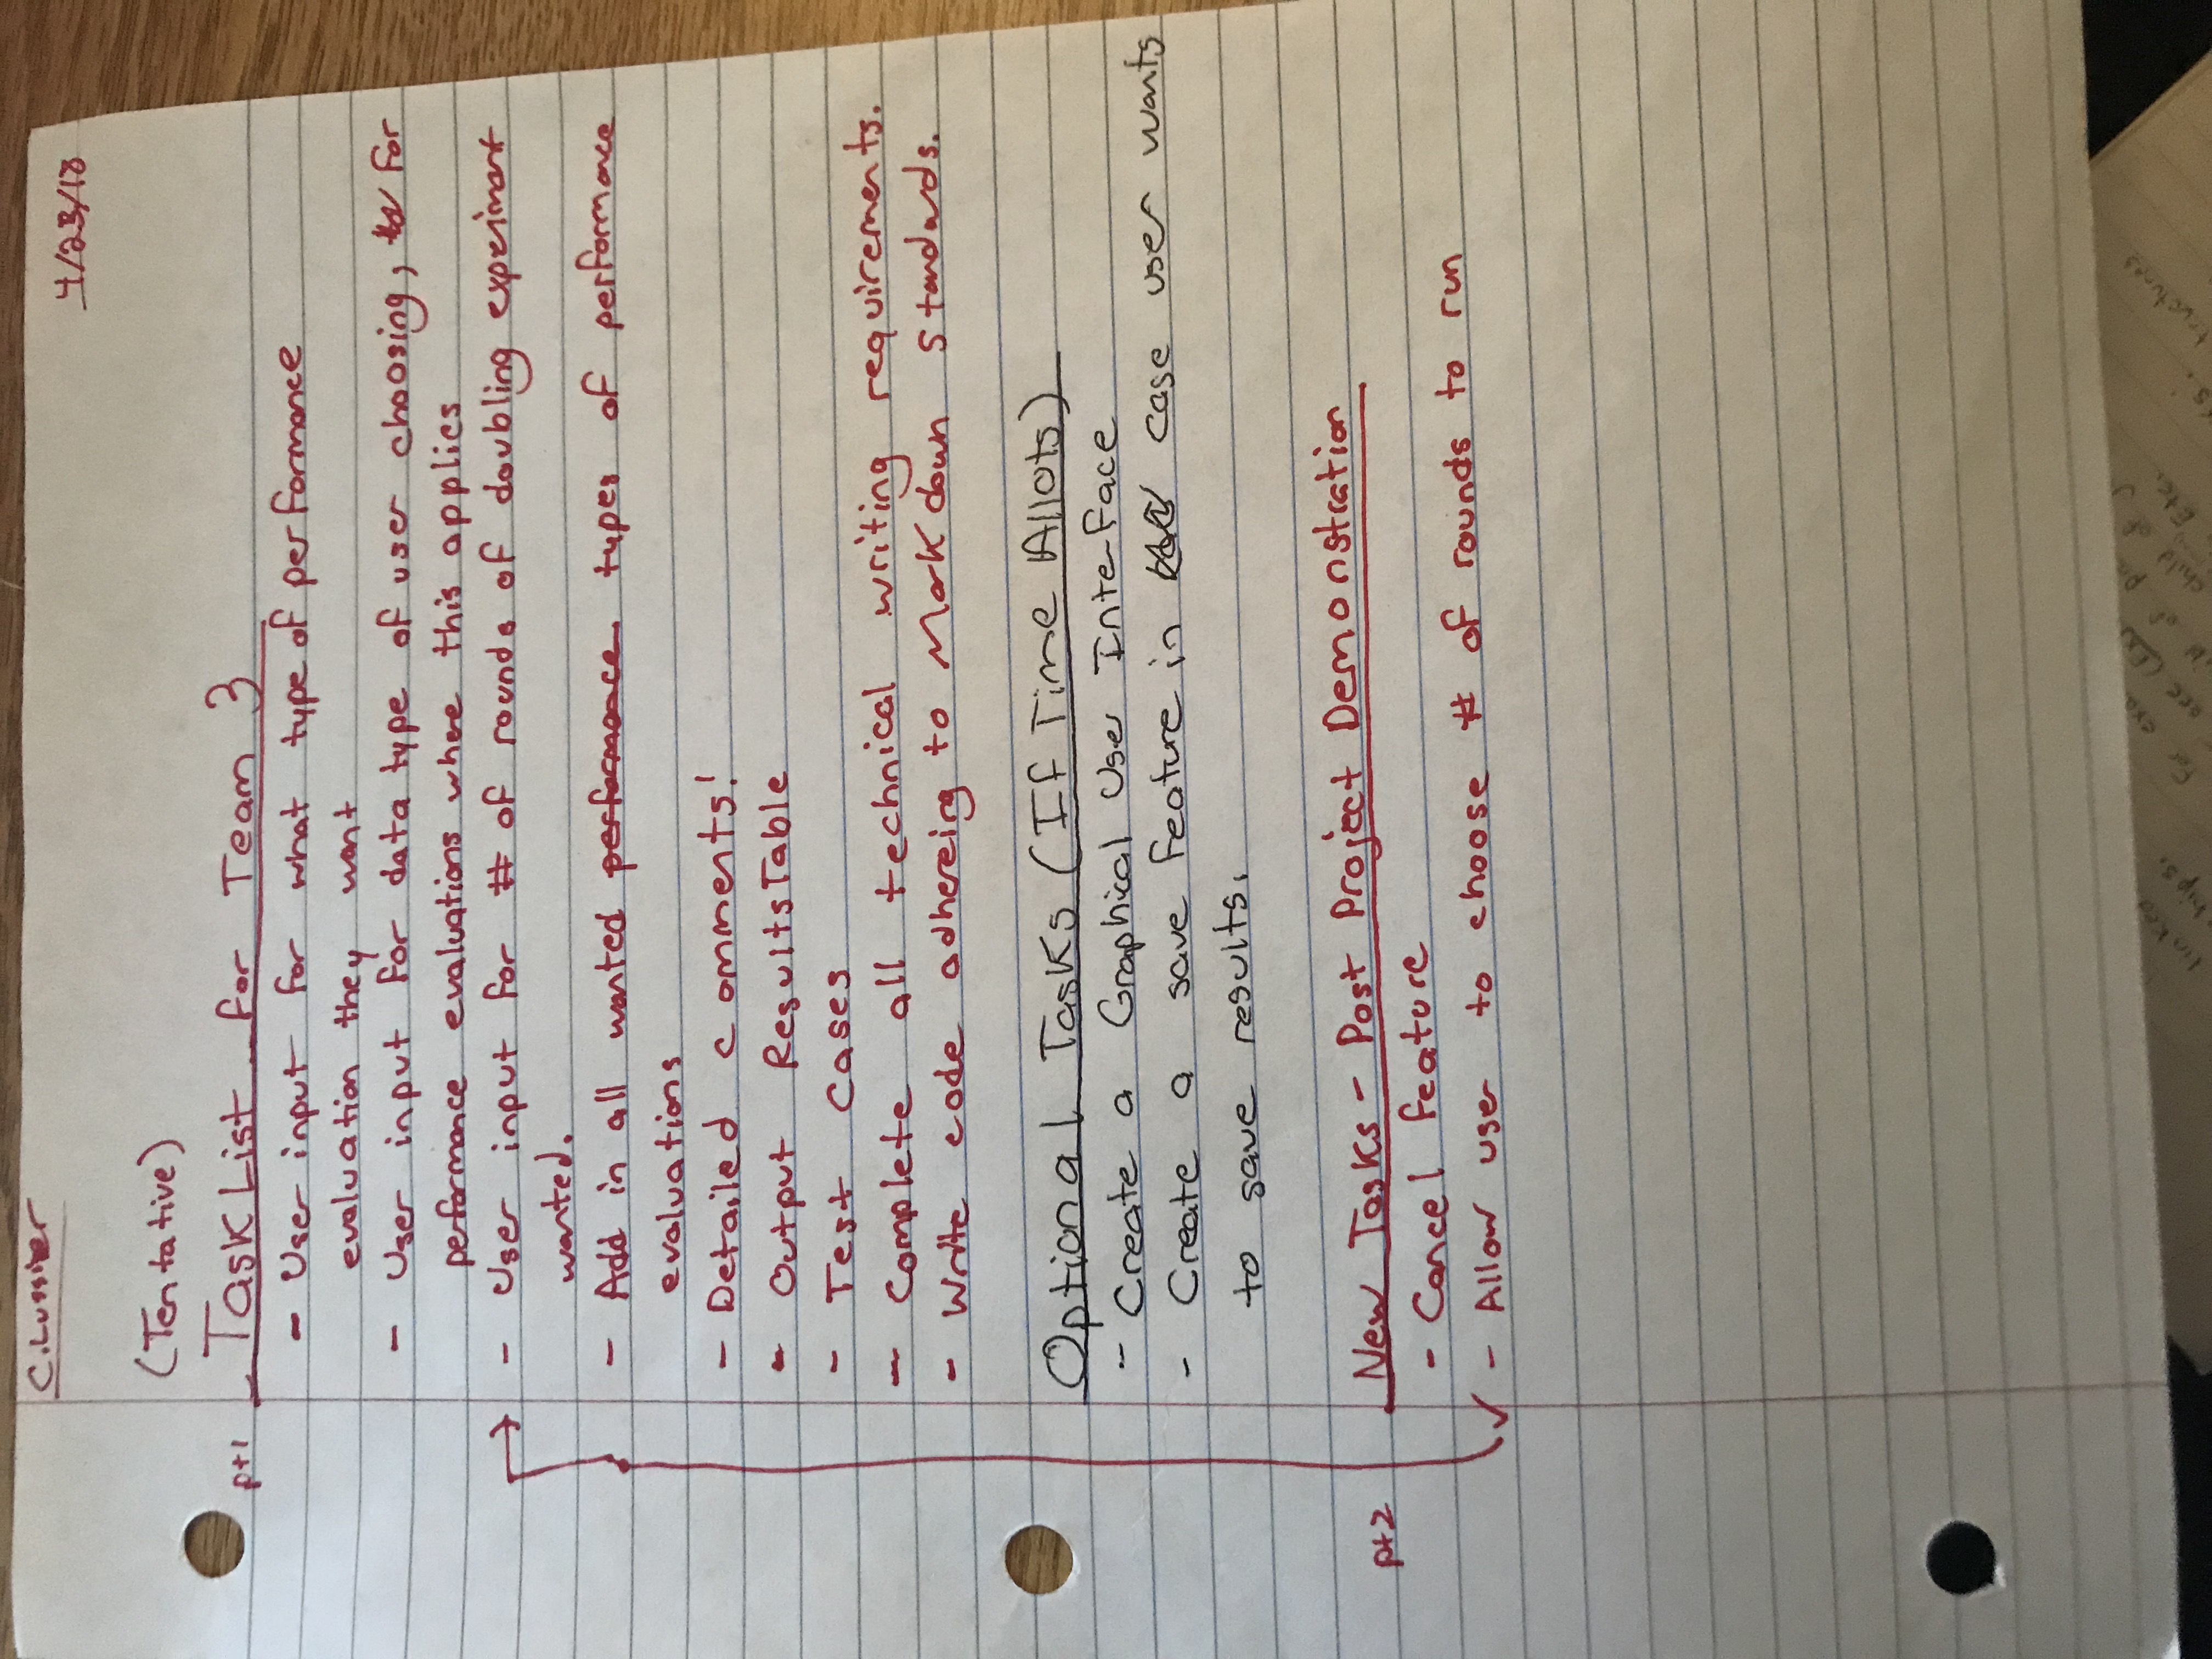 C. Lussier
4/23/18
(Tentative)
pt1 Task List for Team 3
- User input for what type of performance
evaluation they want
- User input for data type of user choosing, for
performance evaluations where this applies
- User input for # of rounds of doubling experiment
wanted.
- Add in all wanted performance types of performance
evaluations
- Detailed comments!
- Output Results Table
- Test Cases
- Complete all technical writing requirements.
- Write code adhereing to Markdown standards.
Optional Tasks (If Time Allots)
- Create a Graphical User Interface
- Create a save feature in case user wants
to save results.
pt2 New Tasks - Post Project Demonstration
- Cancel feature
- Allow user to choose # of rounds to run
linked
hips.
for exa
are (Ex
child of
Etc.
tructures